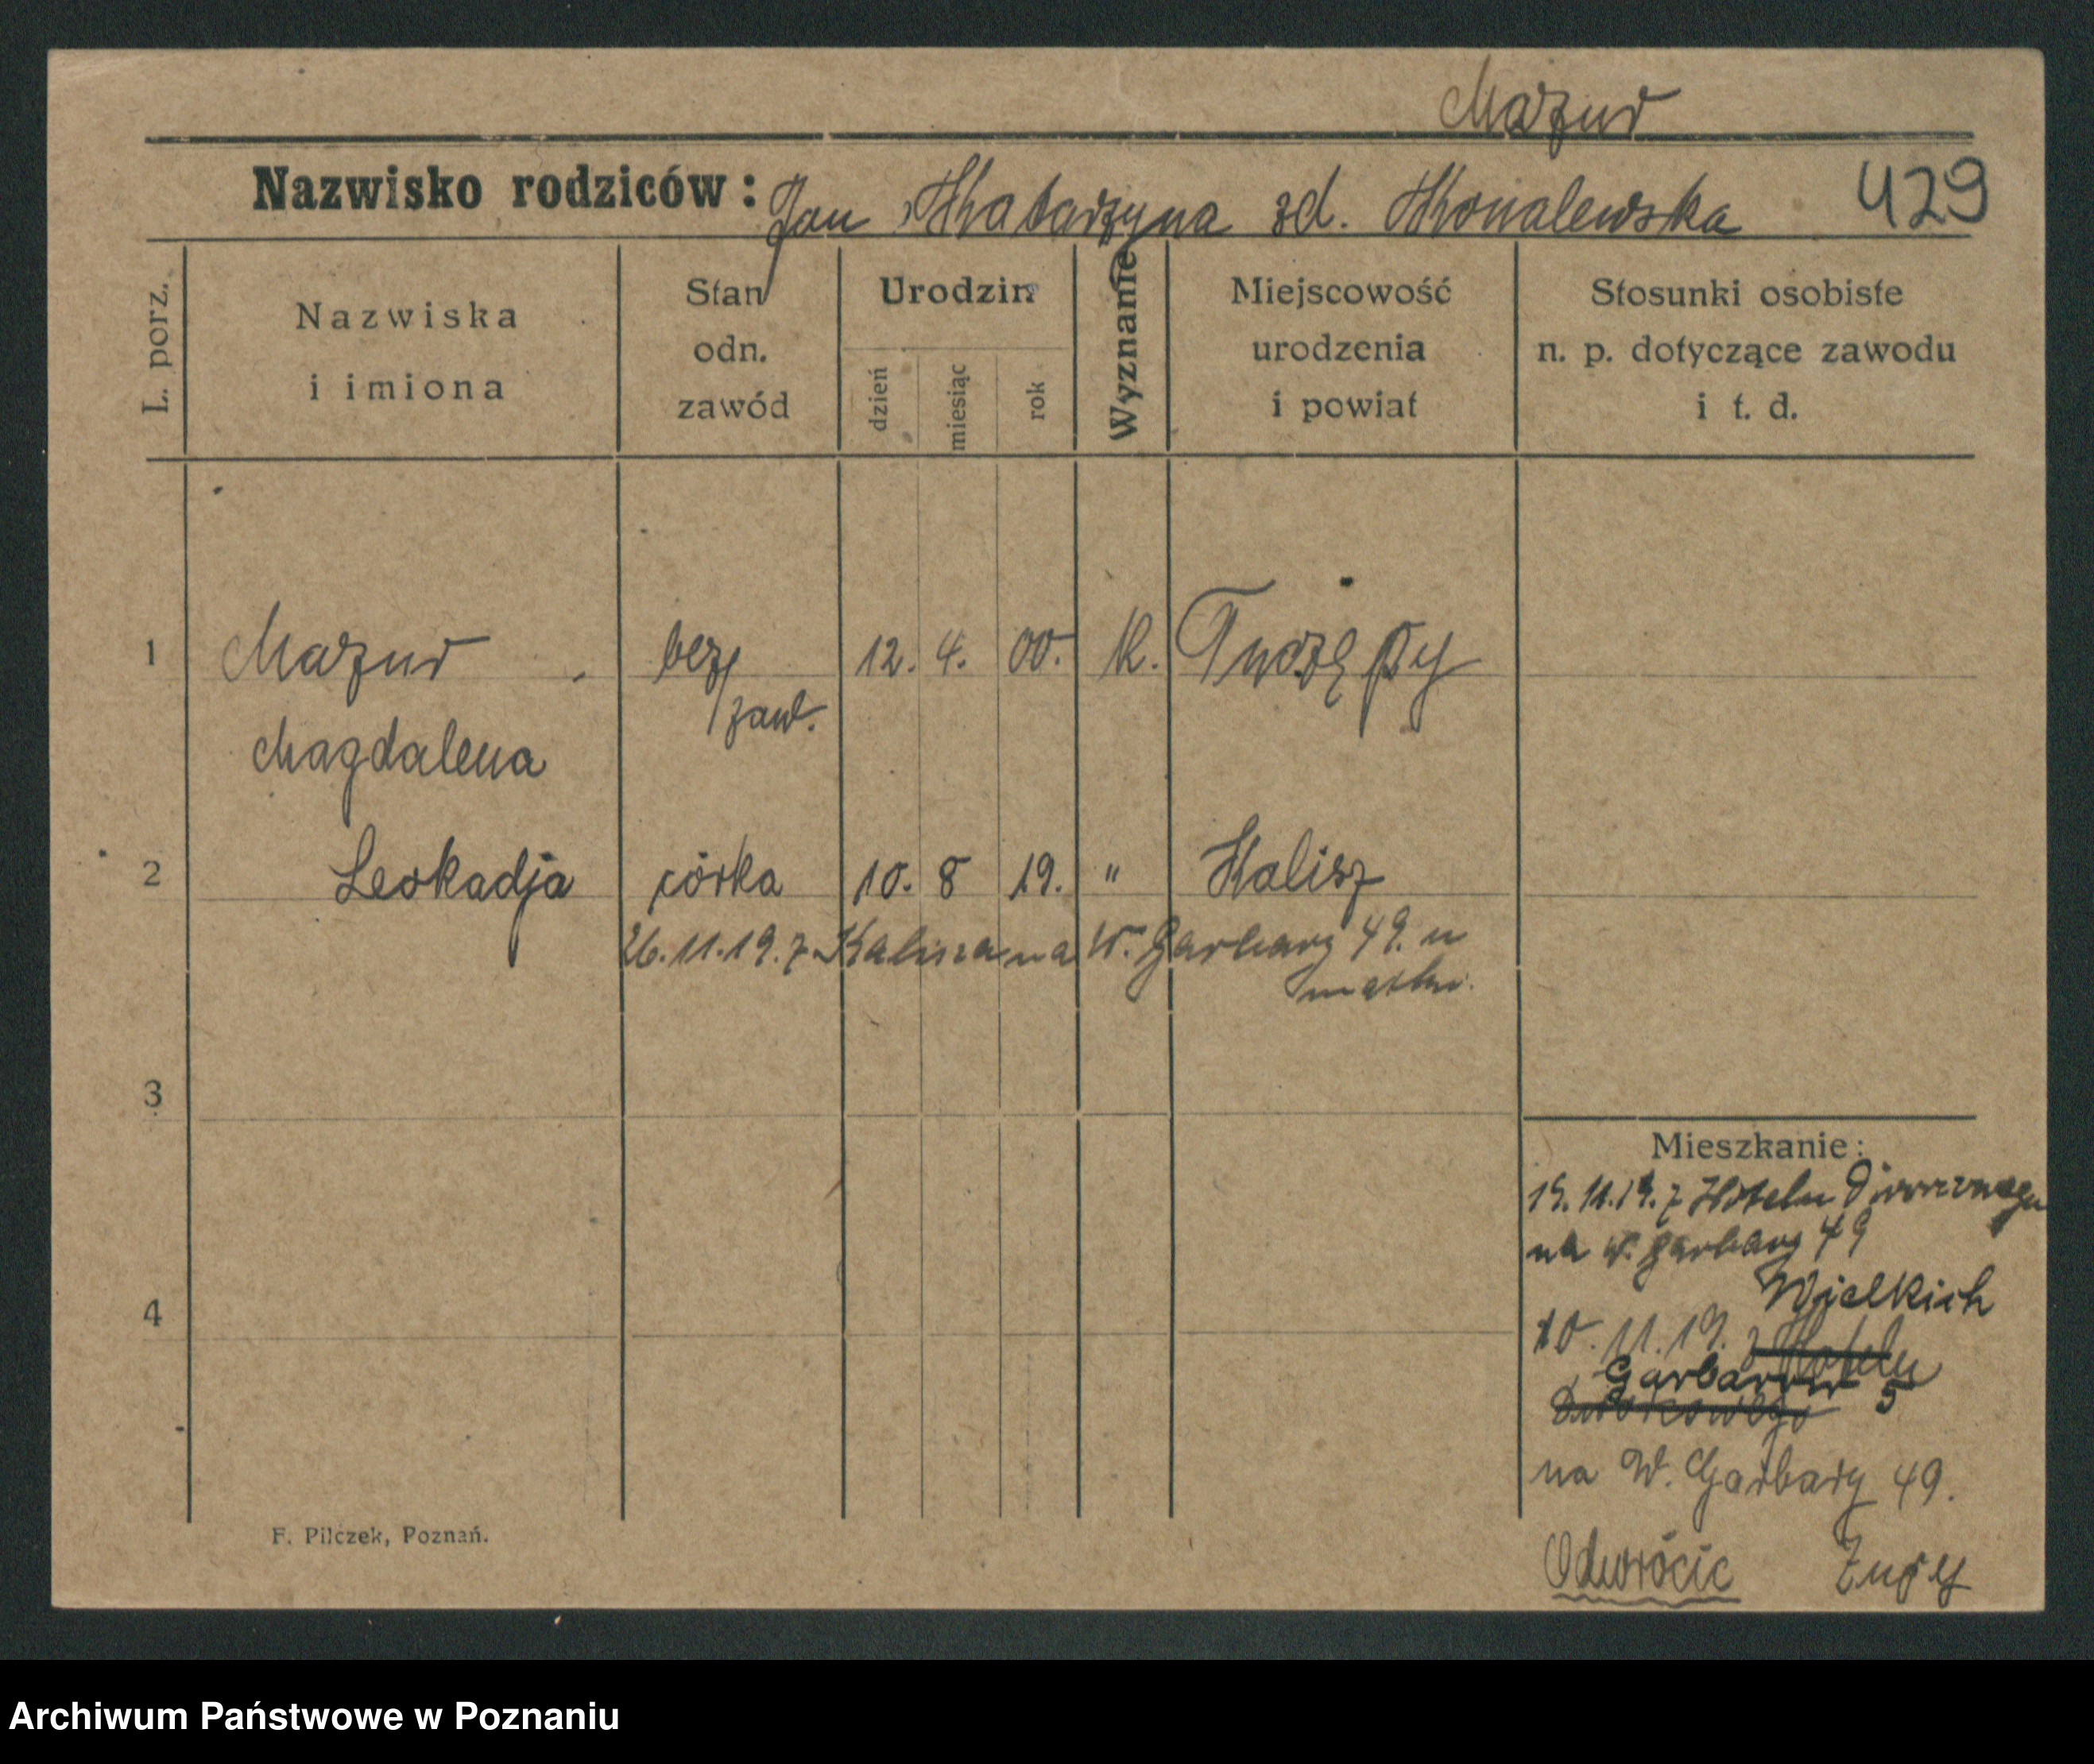 Mazur
Nazwisko rodziców: Jan, Katarzyna zd. Kowalewska 429
L. porz.
Nazwiska
i imiona
Stan
odn.
zawód
Urodzin
dzień
miesiąc
rok
Wyznanie
Miejscowość
urodzenia
i powiat
Stosunki osobiste
n. p. dotyczące zawodu
i t. d.
1 Mazur bez 12. 4. 00. K. Tuczępy
zaw.
Magdalena
2 Leokadja córka 10. 8 19. " Kalisz
26.11.19. z Kalisza na W. Garbary 49. u
matki.
3
Mieszkanie:
19.11.19. z Hotelu Dworcowego
na W. Garbary 49
Wielkich
4
10.11.19. z Hotelu
Garbarow 5
Dworcowego
na W. Garbary 49.
F. Pilczek, Poznań.
Odwrócić
Archiwum Państwowe w Poznaniu